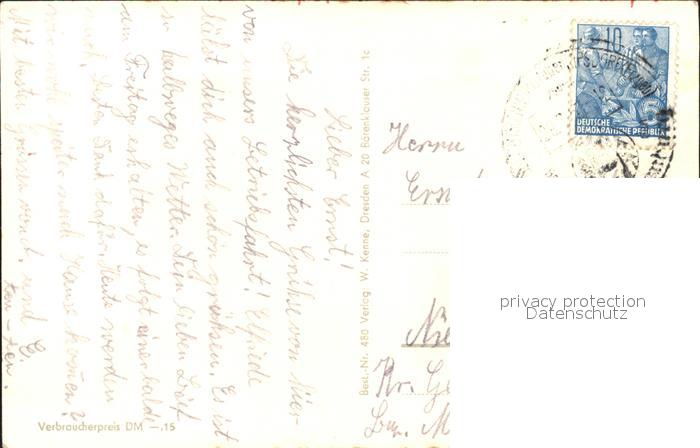 Lieber Ernst!
Die herzlichsten Grüße von hier
von unserer Betriebsfahrt! Elfriede
läßt dich auch schön grüßen. Es ist
so halbwegs Wetter. Dein lieben Brief
am Freitag erhalten, es folgt einer balde
nach, besten Dank dafür. Heute werden
wir wohl später nach Hause kommen?
Mit besten Grüßen verbl. und E.
Best.-Nr. 480 Verlag W. Kenne, Dresden A 20 Borenklauer Str. 1c
Verbraucherpreis DM —.15
10
5
DEUTSCHE
DEMOKRATISCHE REPUBLIK
Herrn
Kr. Ge
Bez. M
privacy protection
Datenschutz